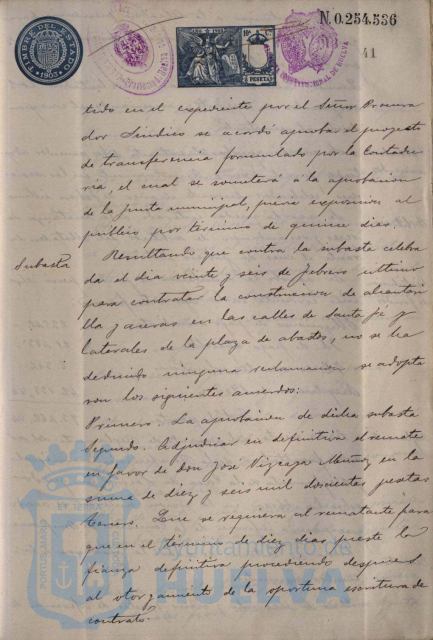 N. 0.254.536
TIMBRE DEL ESTADO
1903
41
2 PESETAS
tido en el expediente por el Señor Procura
dor Síndico se acordó aprobar el proyecto
de transferencia formulado por la Contadu
ria, el cual se someterá á la aprobacion
de la Junta municipal, previa exposicion al
público por término de quince dias.
Subasta
Resultando que contra la subasta celebra
da el dia veinte y seis de febrero ultimo
para contratar la construccion de alcantari
lla y aceras en las calles de Santa Fé y
laterales de la plaza de abastos, no se ha
deducido ninguna reclamacion se adopta
ron los siguientes acuerdos:
Primero. La aprobacion de dicha subasta
Segundo. Adjudicar en definitiva el remate
en favor de don José Vizcaya Muñoz en la
suma de diez y seis mil doscientas pesetas
Tercero. Que se requiera al rematante para
que en el término de diez dias preste la
fianza definitiva procediendo despues
al otorgamiento de la oportuna escritura de
contrato.
PORTUS MARIS
ET TERRAE
Ayuntamiento de
HUELVA